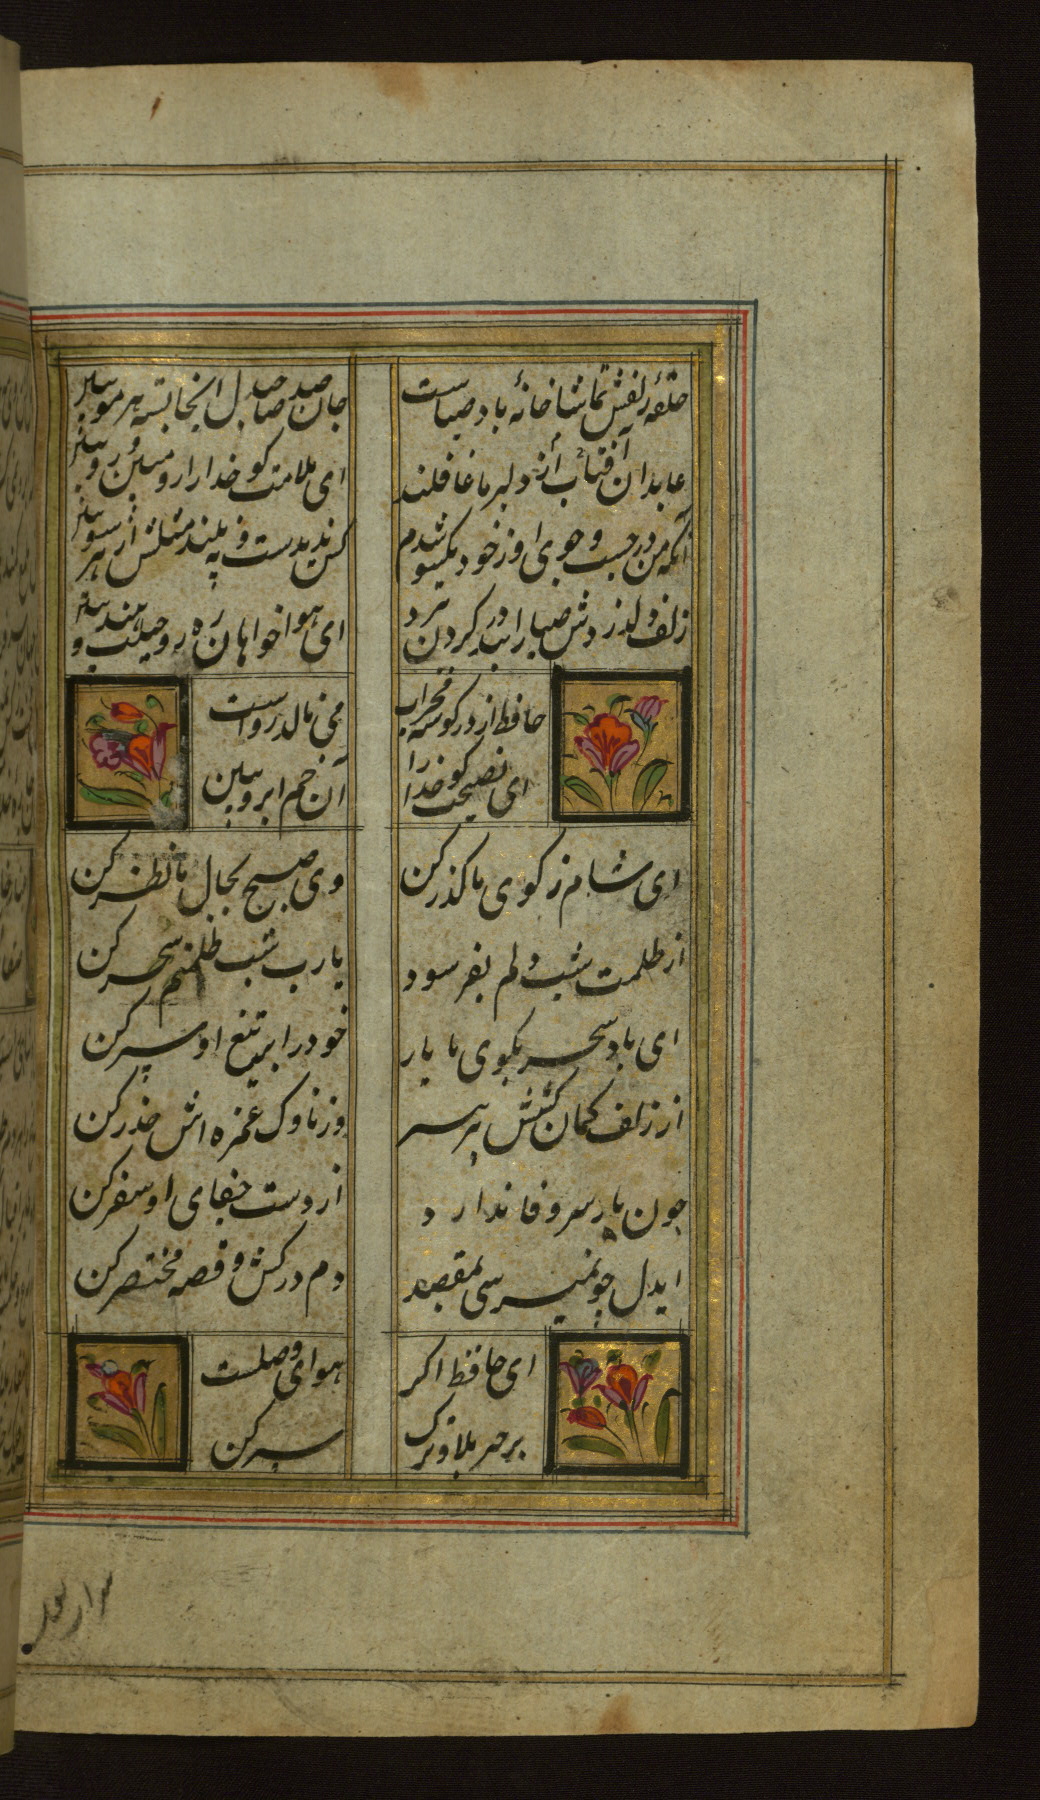 حلقهٔ زلفش تماشاخانهٔ باد صباست جان صد صاحبدل آنجا بسته هر مو ببین
عابدان آفتاب از دلبر ما غافلند ای ملامت کو خدا را رو مبین و رو ببین
آنکه من در جست و جوی او ز خود یکسو شدم کس ندیدست و نه بیند مثلش از هر سو ببین
زلف دلدزدش صبا را بند در کردن نهد ای هواخواهان ره رو حیلت هندو ببین
حافظ از در کوشه محراب می نالد رواست
ای نصیحت کو خدا را آن خم ابرو ببین
ای شام ز کوی ما کذر کن وی صبح بحال ما نظر کن
از ظلمت شب دلم بفرسود یارب شب ظلمتم سحر کن
ای باد سحر بکوی با یار خود را تیغ او سپر کن
از زلف کمان کشش وز ناوک غمزه اش حذر کن
چون یار سر وفا ندارد از دست جفای او سفر کن
ایدل چو نمیرسی بمقصد دم درکش و قصه مختصر کن
ای حافظ اکر هوای وصلست
بلا و ترک سر کن